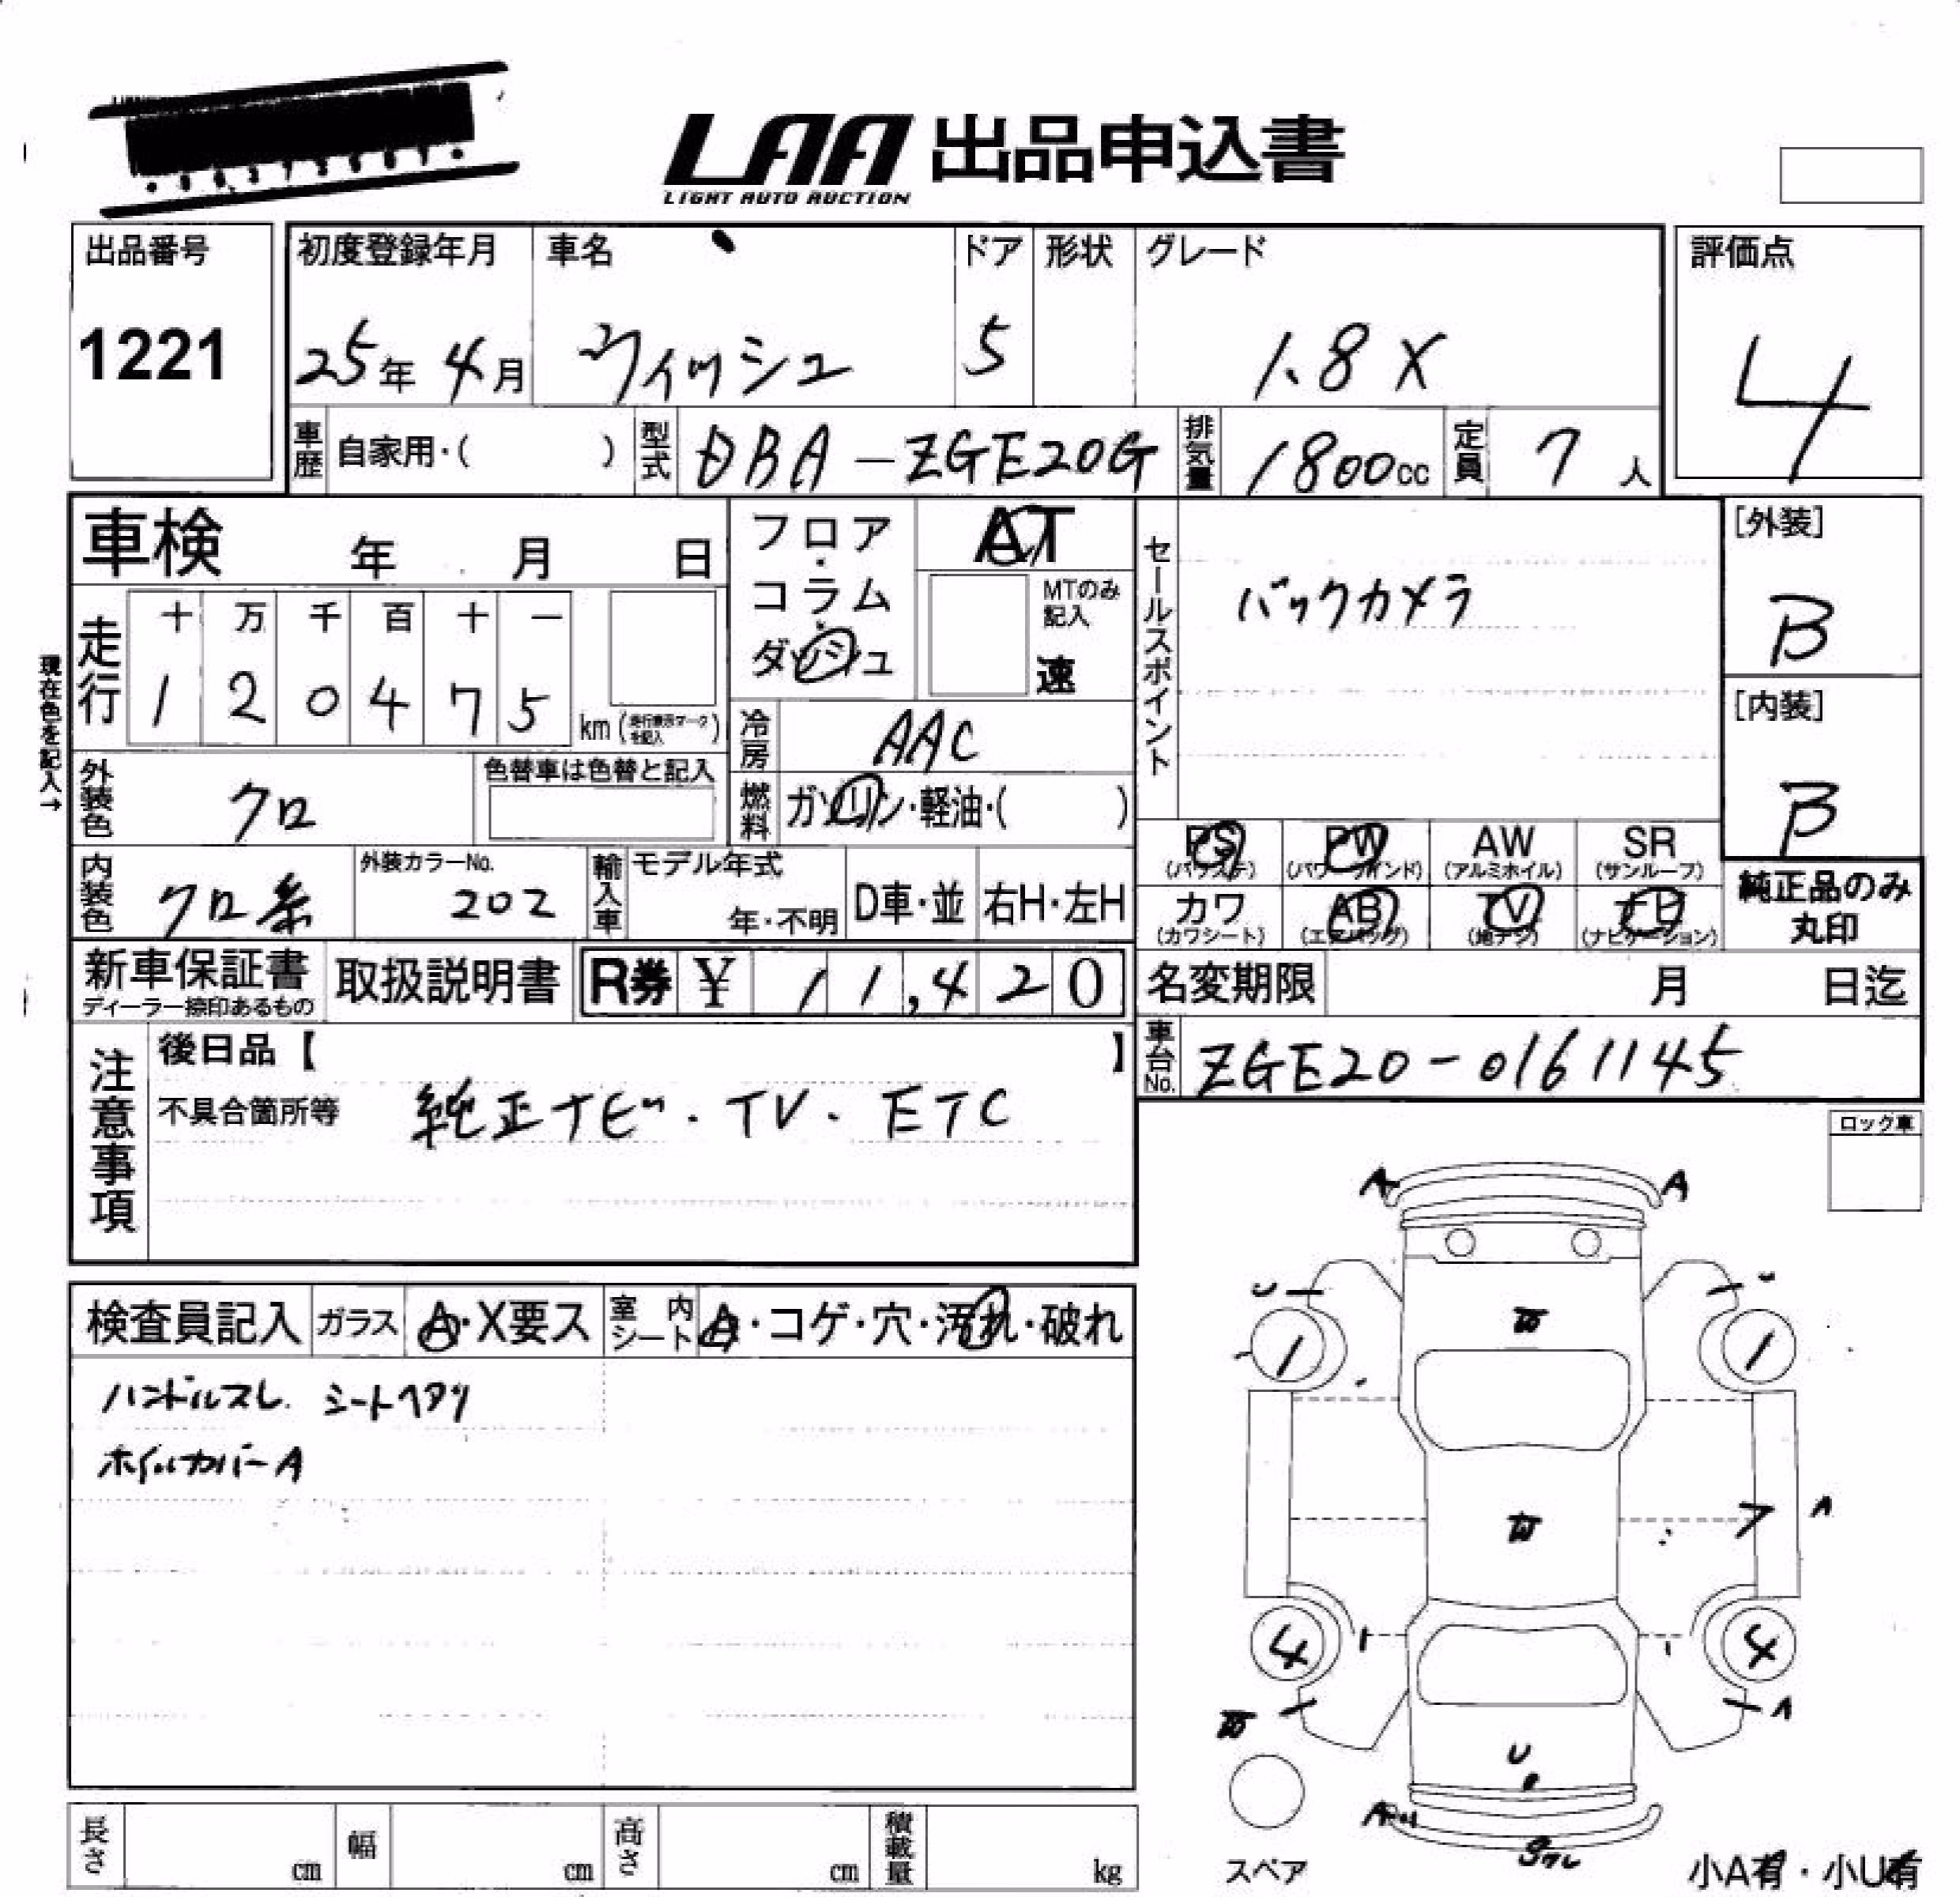 LAA 出品申込書
LIGHT AUTO AUCTION
出品番号
1221
初度登録年月 車名 ドア 形状 グレード
25年 4月 ウィッシュ 5 1.8X
評価点
4
車歴 自家用・( ) 型式 DBA-ZGE20G 排気量 1800cc 定員 7人
車検 年 月 日
フロア・コラム・ダッシュ
AT
MTのみ記入
速
セールスポイント
バックカメラ
[外装]
B
[内装]
B
現在色を記入→
走行 十 万 千 百 十 一
1 2 0 4 7 5 km (走行表示マークを記入)
冷房 AAC
外装色 クロ 色替車は色替と記入
燃料 ガソリン・軽油・( )
PS PW AW SR
(パワステ) (パワーウインド) (アルミホイル) (サンルーフ)
内装色 クロ系 外装カラーNo. 202
輸入車 モデル年式 年・不明 D車・並 右H・左H
カワ AB TV
(カワシート) (エアバッグ) (地デジ) (ナビゲーション)
純正品のみ
丸印
新車保証書 取扱説明書 R券 ¥ 11,420
ディーラー捺印あるもの
名変期限 月 日迄
車台No. ZGE20-0161145
注意事項
後日品【 】
不具合箇所等 純正ナビ・TV・ETC
ロック車
検査員記入 ガラス A・X要ス 室内シート A・コゲ・穴・汚れ・破れ
ハンドルスレ シートヘタリ
ホイルカバーA
A A
1 1
A
4 4
A
U
スペア
小A有・小U有
長さ cm 幅 cm 高さ cm 積載量 kg